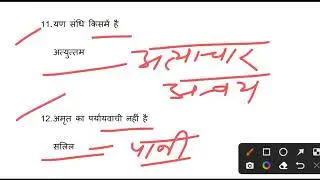 11.यण संधि किसमें है
अत्युत्तम
अत्याचार
अन्वय
12.अमृत का पर्यायवाची नहीं है
सलिल
पानी